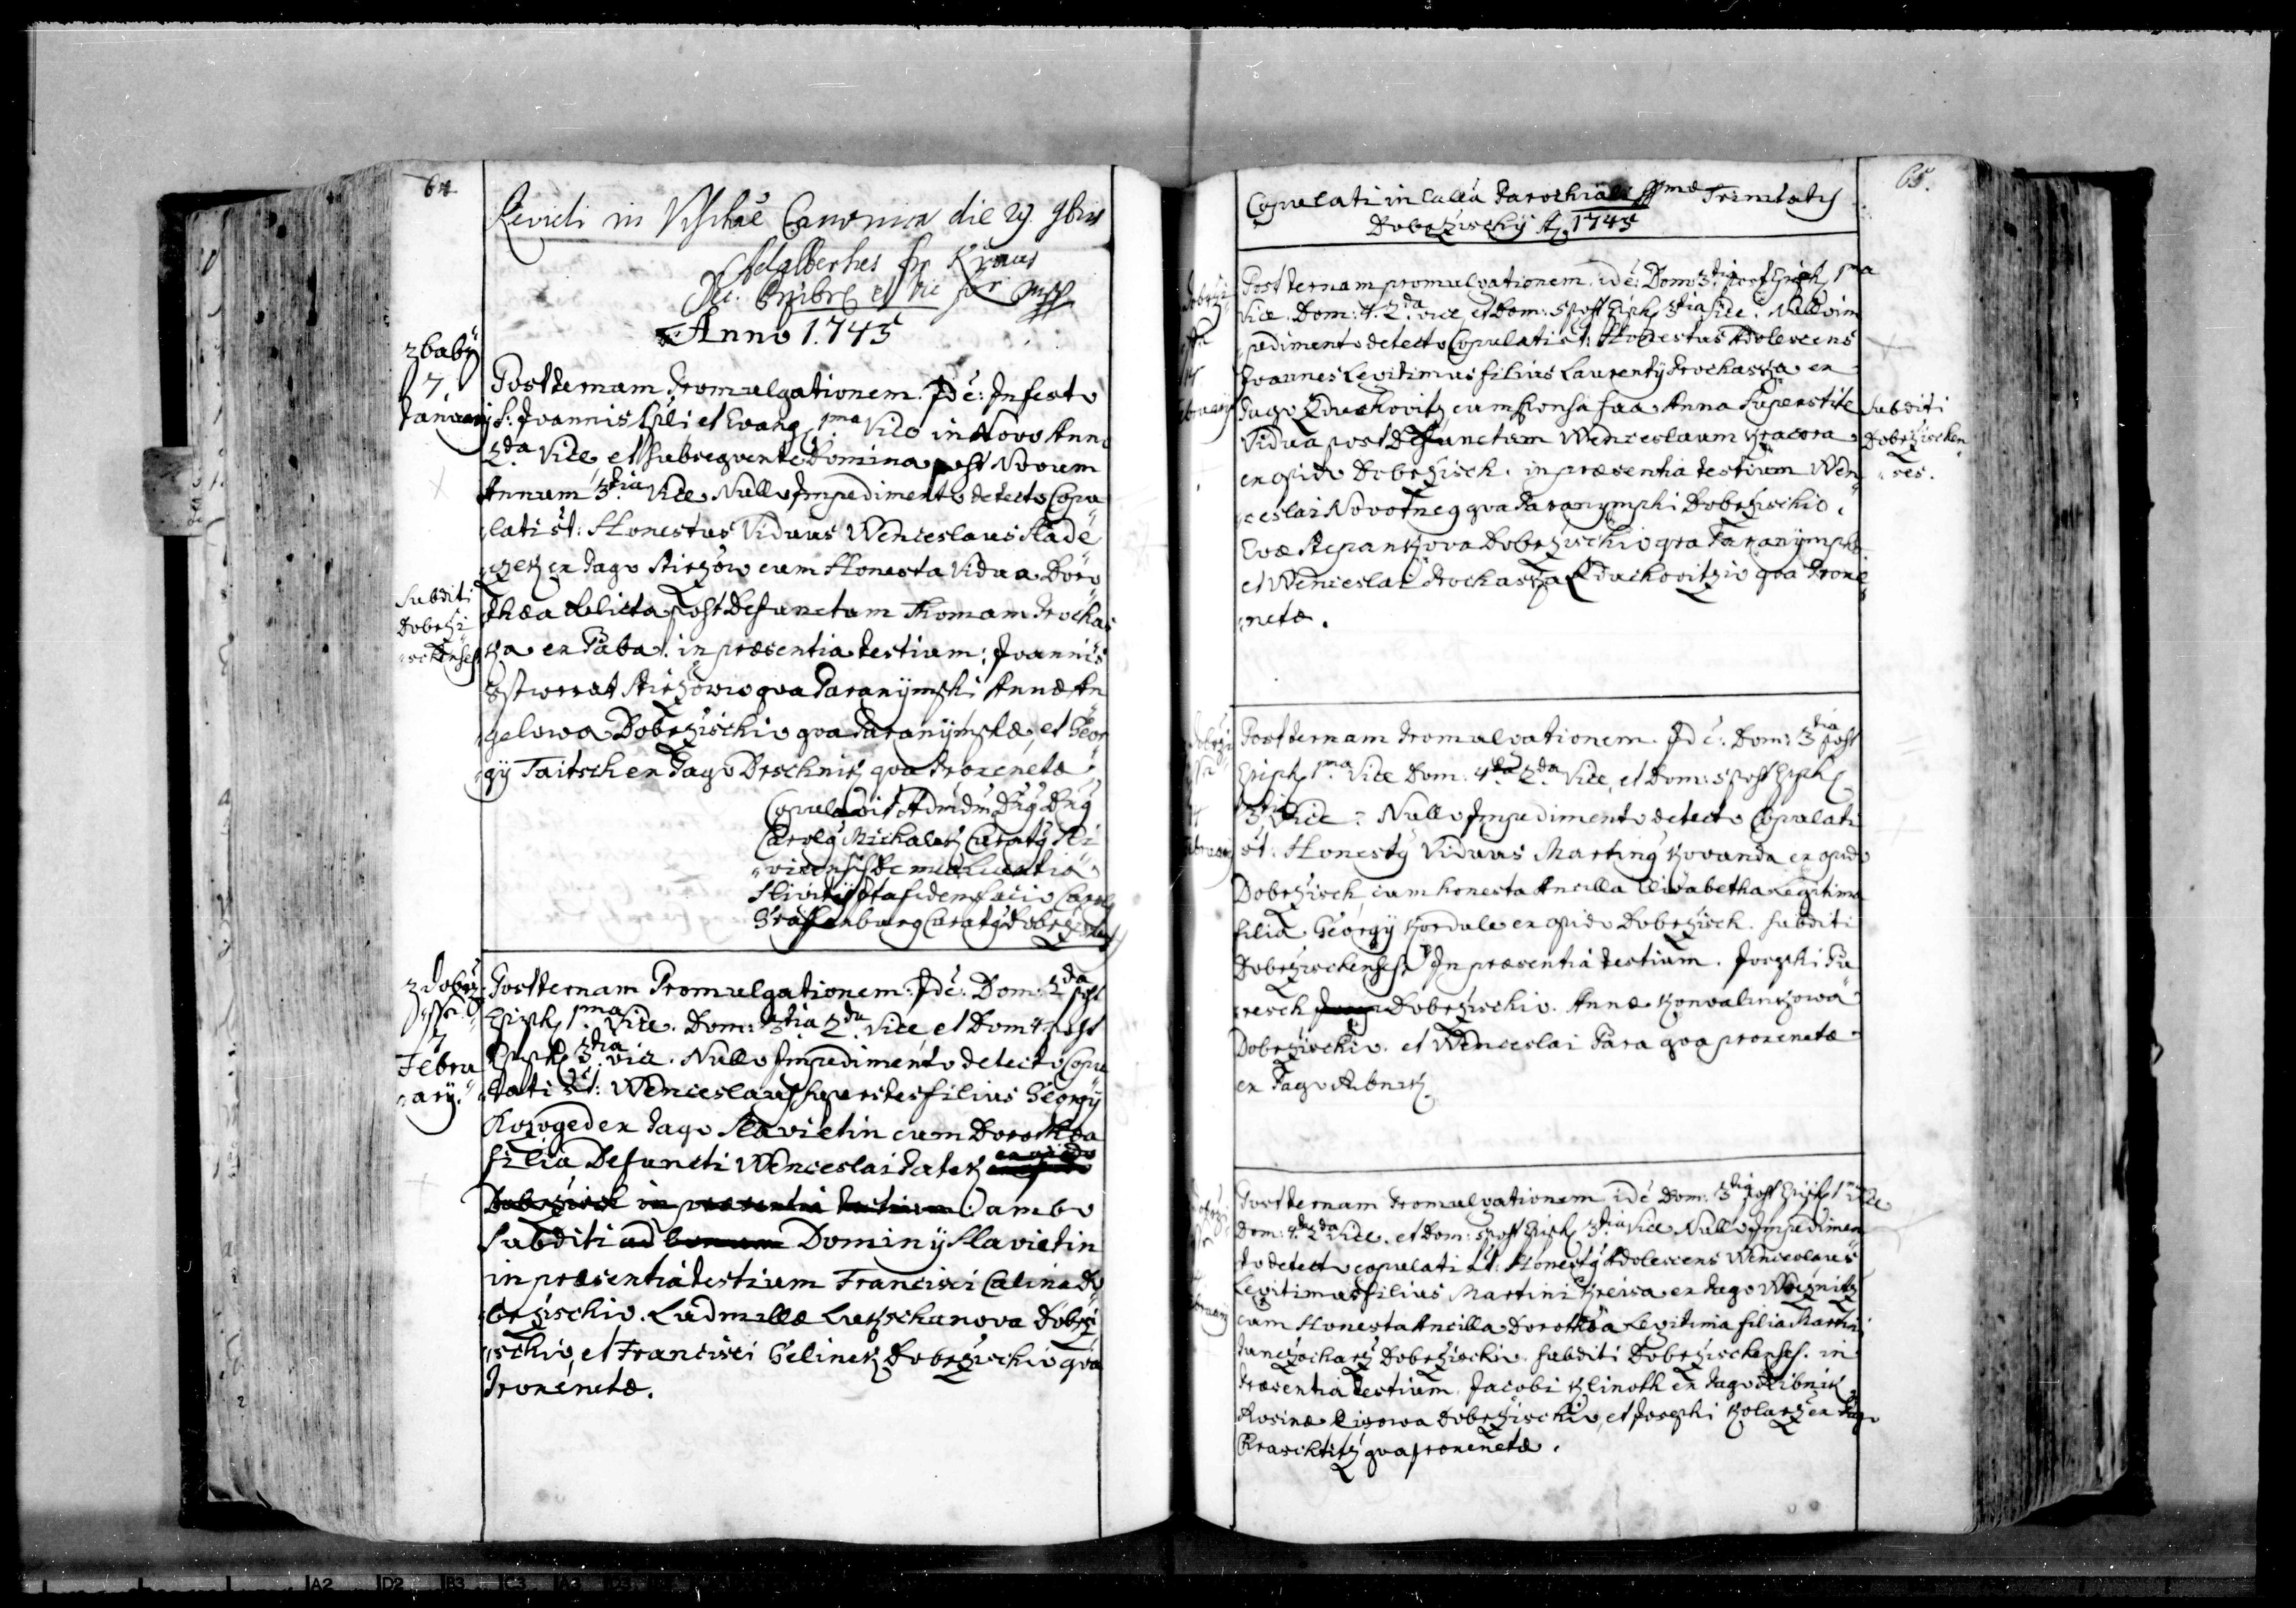 64
Revidi in Visitãe Canonica die 29 9bris
Adalbertus Kraus
Anno 1.745
z baby
7
January
Post ternam Promulgationem. Id ē: In festo
S: Joannis Apli et Evang 1ma Vice in Novo Anno
2da Vice et Subsequente Dominica post Novum
Annum 3tia Vice. Nullo Impedimento detecto Copu
lati sṫ: Honestus Viduus Wenceslaus Sladé
czek ex Pago Stirzow cum Honesta Vidua Doro
Subditi
Dobrzi
schenses
thæa relicta post Defunctum Thomam Prochas
ka ex Paba. in præsentia testium: Joannis
Stirzowio qua Paranijmphi Annæ An
gelowa Dobrzischio qua Paranijmphæ, et Geor
gij Taitsch ex Pago Drschnik qua Proxenetæ
Copulavit Admdm Dng Dng
Carolg Michalek Curatg Sli
vicensis De mea Licentia
Slivity ita fidem facio Carolg
Gräffenburg Curatg Dobrzischens
z Dobrz
yssie
7
Febru
ary.
Post ternam Promulgationem. Id ē: Dom: 2da post
Epiph 1ma Vice. Dom: 3tia 2da Vice et Dom 4 post
Epiph 3tia vice. Nullo Impedimento detecto Copu
lati sṫ: Wenceslaus Superstes filius Georgij
Kozoged ex Pago Slavietin cum Dorothea
filia Defuncti Wenceslai Patek ex opido
Dobrzisch in præsentia testium: ambo
Subditi ad bonum Dominij Slavietin
in præsentia testium Francisci Calina Do
brzischio. Ludmillæ Lukschanova Dobrzi
schio, et Francisci Gelinek Dobrzischio qua
Proxenetæ.
65.
Copulati in Callia Parochiali SSmæ Trinitatis
Dobrzischij A. 1745
Post ternam promulgationem. id ē: Dom: 3tia post Epiph 1ma
Vice. Dom: 4. 2da vice, et Dom: 5 post Epiph 3tia Vice. Nullo im
pedimento detecto Copulati sṫ: Honestus Adolescens
Joannes Legitimus filius Laurentij Prochaska ex
Pago Duchovitz cum sponsa sua Anna Superstite
Vidua post Defunctum Wenceslaum Kracora
ex opido Dobrzisch. in præsentia testium Wen
ceslai Novotneg qua Paranijmphi Dobrzischio.
Evæ Stepankova Dobrzischio qua Paranijmphæ
et Wenceslai Prochaska Duchovitzio qua Proxe
netæ.
Subditi
Dobrzischen
ses.
Post ternam Promulgationem. Id ē: Dom: 3tia post
Epiph 1ma Vice Dom: 4ta 2da Vice, et Dom: 5 post Epiph
3tia Vice. Nullo Impedimento detecto Copulati
sṫ: Honestg Viduus Marting Kovanda ex opido
Dobrzisch cum honesta Ancilla Elisabetha Legitima
filia Georgij Kordule ex opido Dobrzisch. Subditi
Dobrzischenses. In præsentia testium. Josephi Pu
resch Dobrzischio. Annæ Konvalinkowa
Dobrzischio. et Wenceslai Para qua proxenetæ
ex Pago Ribnik.
Post ternam Promulgationem id ē Dom: 3tia post Epiph 1ma Vice
Dom: 4ta 2da Vice. et Dom: 5 post Epiph 3tia Vice Nullo Impedimen
to detecto copulati sṫ: Honestg Adolescens Wenceslaus
Legitimus filius Martini Kreisa ex Pago Woznitz
cum Honesta Ancilla Dorothea Legitima filia Martini
Dobrzischio. Subditi Dobrzischenses. in
Præsentia testium. Jacobi Klinoth ex Pago Ribnik
Rosinæ Dobrzischio, et Josephi Kolarz ex Pago
qua proxenetæ.